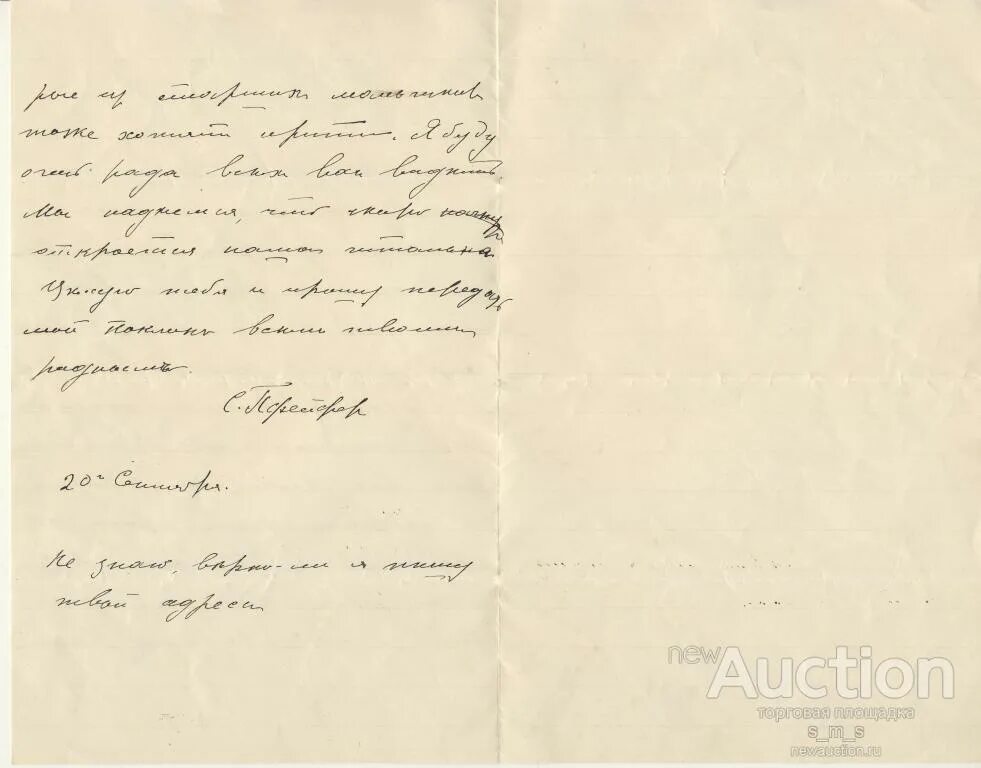 рые из старших мальчиков
тоже хотят прити. Я буду
очень рада всех вас видеть.
Мы надеемся, что скоро
откроется наша читальня
Целую тебя и прошу передать
мой поклон всем твоим
родным.
С. Пфейфер
20го Сентября.
Не знаю, верно-ли я пишу
твой адрес
newAuction
торговая площадка
s_m_s
newauction.ru